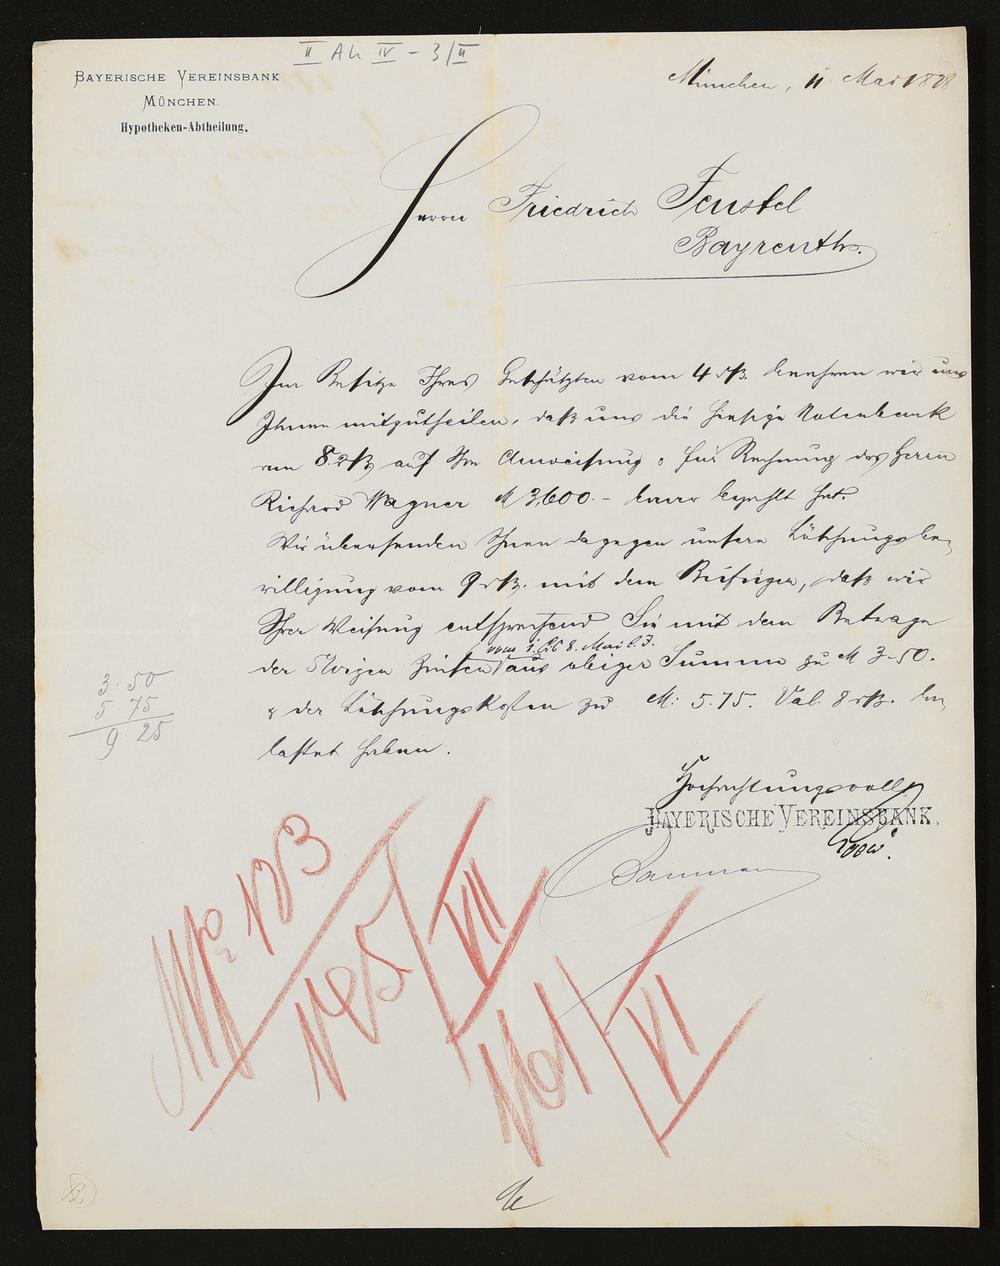 II Ah IV - 3/II
BAYERISCHE VEREINSBANK
MÜNCHEN.
Hypotheken-Abtheilung.
München, 11. Mai 1878
Herrn Friedrich Feustel
Bayreuth.
Im Besitze Ihres Geschätzten vom 4 ds. beehren wir uns
Ihnen mitzutheilen, daß uns die hiesige Notenbank
am 8. ds. auf Ihre Anweisung & für Rechnung des Herrn
Richard Wagner M 3,600.- baar bezahlt hat.
Wir übersenden Ihnen dagegen unsere Löschungsbe-
willigung vom 9 ds. mit dem Beifügen, daß wir
Ihrer Weisung entsprechend Sie mit dem Betrage
vom 1. bis 8. Mai l. J.
der Zinsen aus obiger Summe zu M 3.50.
& der Löschungskosten zu M: 5.75. Val. 8 ds. be-
lastet haben.
3. 50
5 75
9. 25
Hochachtungsvoll
BAYERISCHE VEREINSBANK.
No 123
No 5 VII
No 1 VI
B.